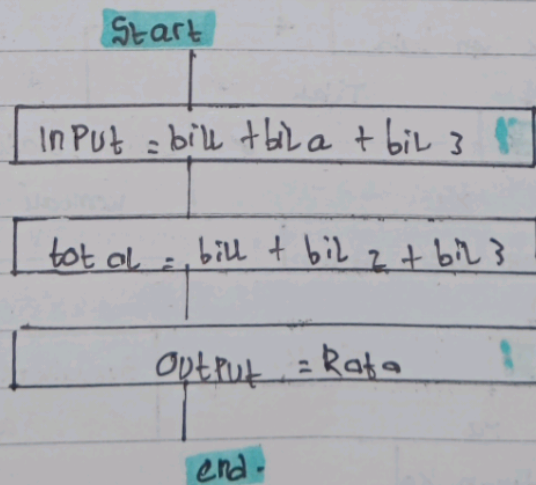 Start
input = bil1 + bil2 + bil 3
total = bil1 + bil 2 + bil 3
output = Rata
end.